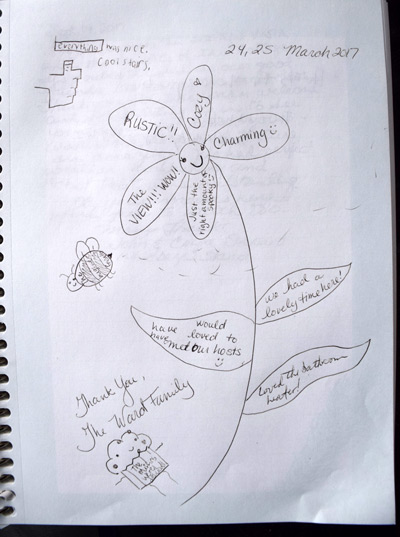 everything was nice.
Cool stairs.
24, 25 March 2017
Cozy
RUSTIC!!
Charming
The
VIEW!!! WOW!!
Just the
right amount
spooky
we had a
lovely time here!
would
have loved to
have met our hosts
Loved the bathroom
heater!
Thank You,
The Ward Family